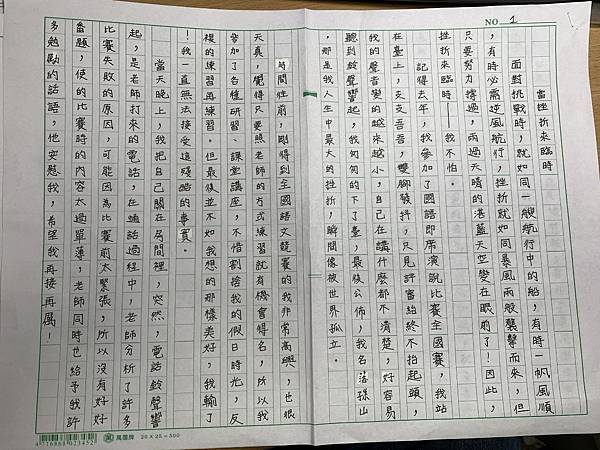 NO 1
當挫折來臨時
面對挑戰時，就如同一艘航行中的船，有時一帆風順
，有時必需逆風航行，挫折就如同暴風雨般襲擊而來，但
只要努力撐過，雨過天晴的湛藍天空變在眼前了！因此，
挫折來臨時——我不怕。
記得去年，我參加了國語即席演說比賽全國賽，我站
在臺上，支支吾吾，雙腳發抖，只見評審始終不抬起頭，
我的聲音變的越來越小，自己在講什麼都不清楚，好容易
聽到鈴聲響起，我匆匆的下了臺，最後公佈，我名落孫山
，那是我人生中最大的挫折，瞬間像被世界孤立。
時間往前，剛得到全國語文競賽的我非常高興，也很
天真，覺得只要照老師的方式練習就有機會得名，所以我
參加了各種研習、課堂講座，不惜割捨我的假日時光，反
複的練習再練習。但最後並不如我想的那樣美好，我輸了
！我一直無法接受這殘酷的事實。
當天晚上，我把自己關在房間裡，突然，電話鈴聲響
起，是老師打來的電話，在通話過程中，老師分析了許多
比賽失敗的原因，可能因為比賽前太緊張，所以沒有好好
審題，使的比賽時的內容太過單薄，老師同時也給予我許
多勉勵的話語，他安慰我，希望我再接再厲！
萬國牌 26X25=500
4716888023452